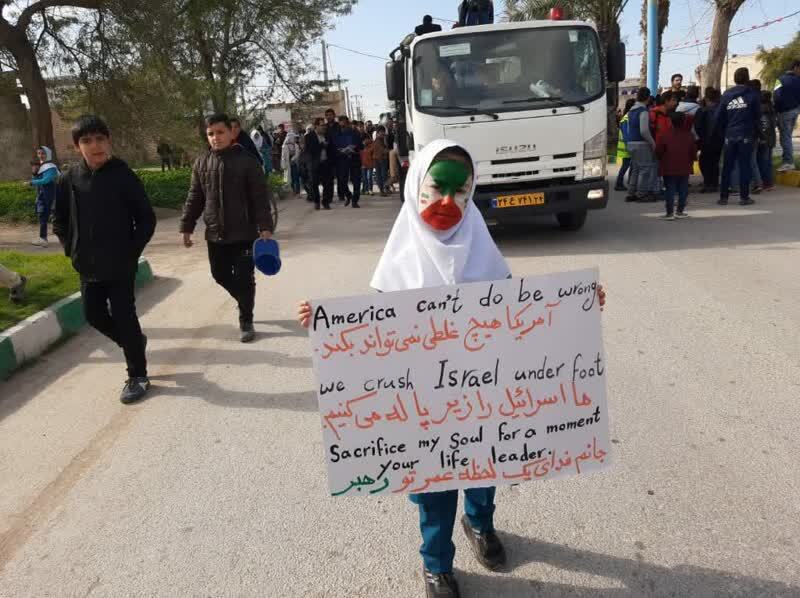 ISUZU
America can't do be wrong
آمریکا هیچ غلطی نمی تواند بکند.
we crush Israel under foot
ما اسرائیل را زیر پا له می کنیم
Sacrifice my Soul for a moment
your life leader.
جانم فدای یک لحظه عمر تو رهبر
adidas